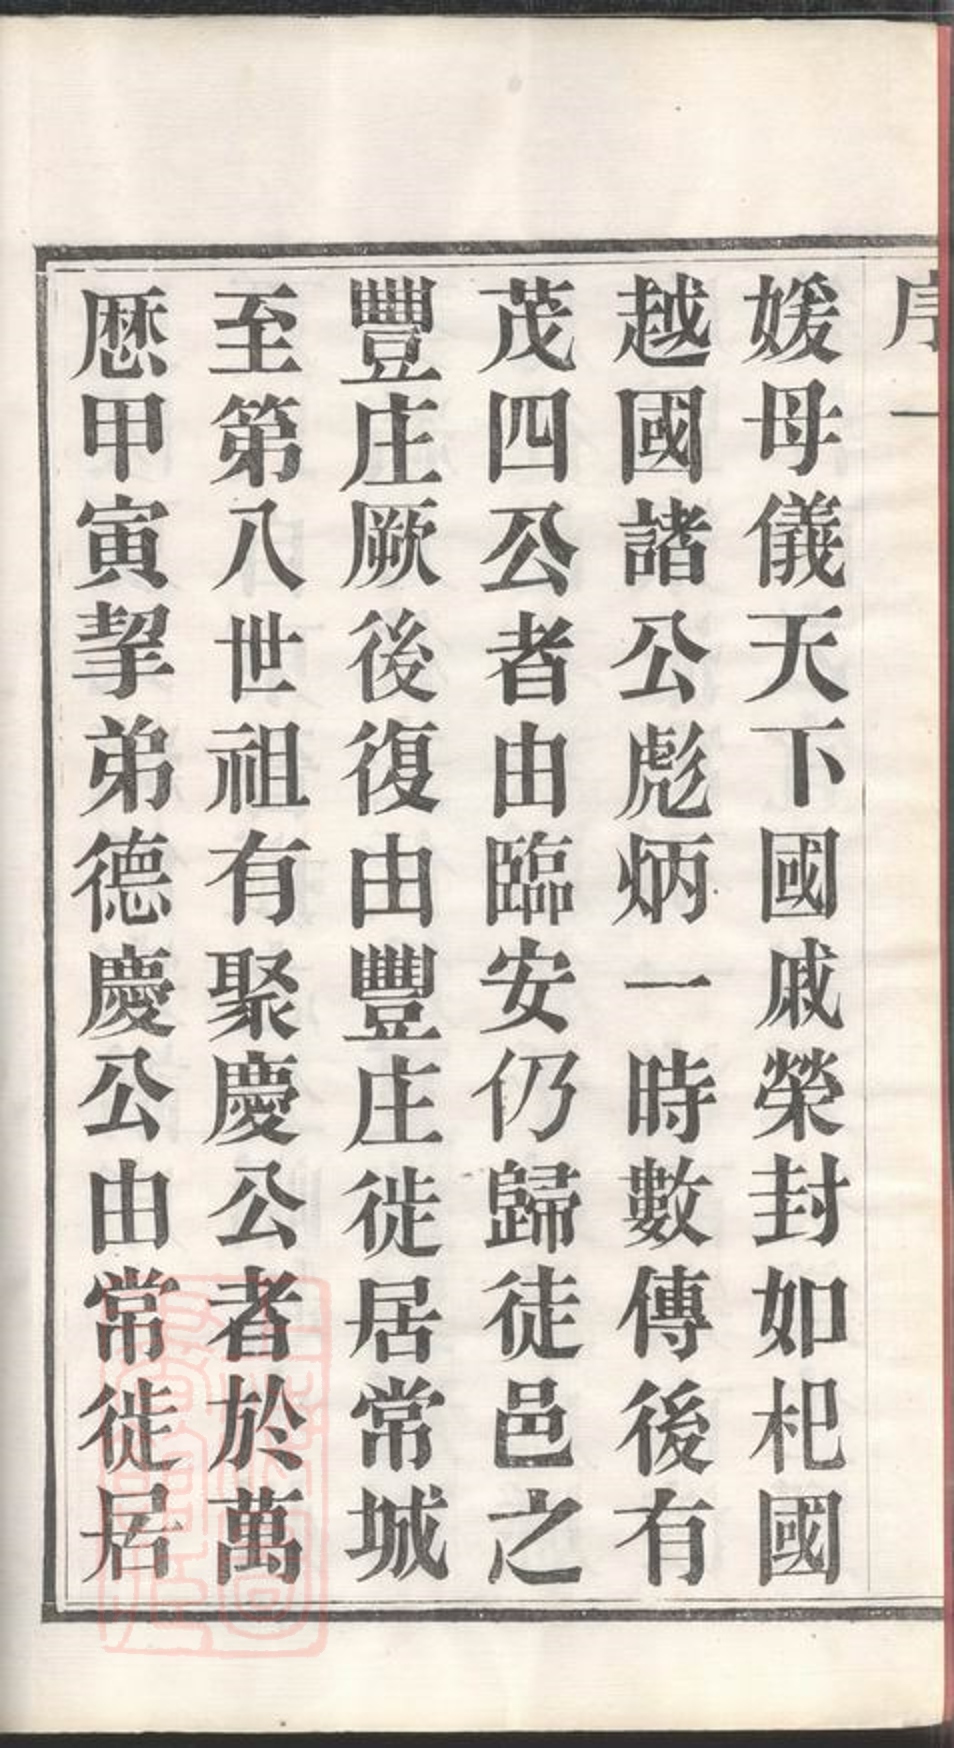 序 一
媛母儀天下國戚榮封如杞國
越國諸公彪炳一時數傳後有
茂四公者由臨安仍歸徒邑之
豐庄厥後復由豐庄徙居常城
至第八世祖有聚慶公者於萬
厯甲寅挈弟德慶公由常徙居